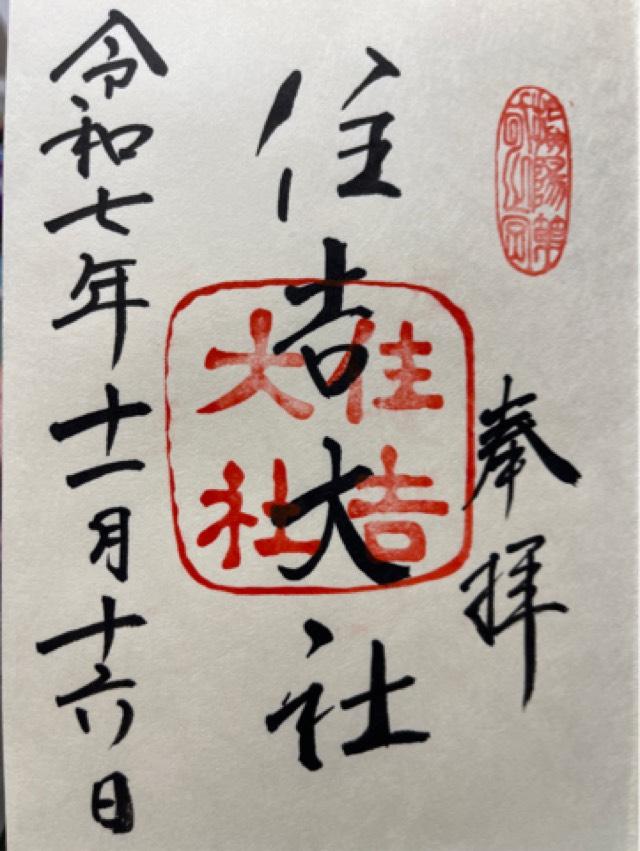 奉拝
住吉大社
住吉
大社
令和七年十一月十六日